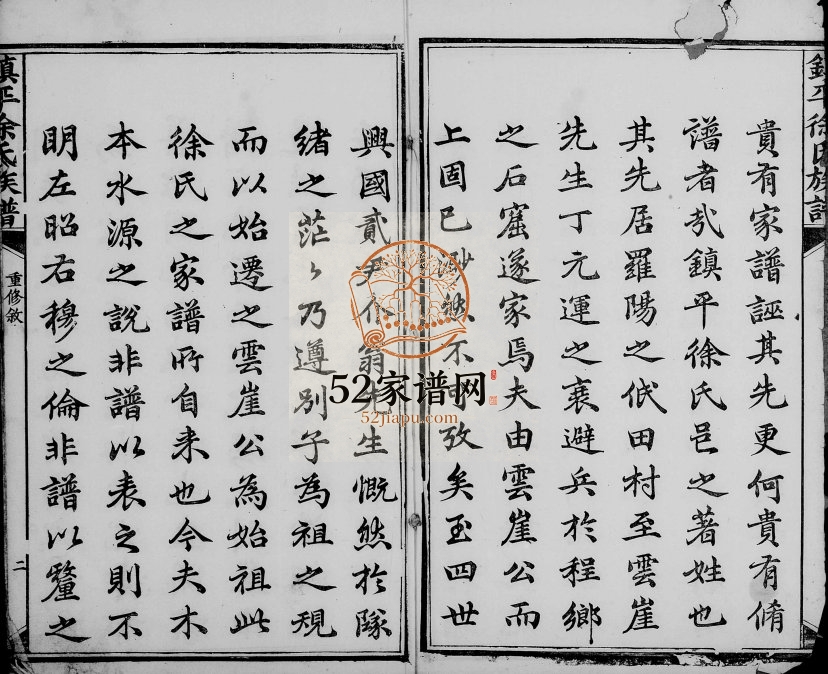 鎮平徐氏族譜
貴有家譜誣其先更何貴有脩
譜者㢤鎮平徐氏邑之著姓也
其先居羅陽之伏田村至雲崖
先生丁元運之衰避兵於程鄉
之石窟遂家焉夫由雲崖公而
上固已渺然不可攷矣至四世
興國貳尹介翁先生慨然於隊
緒之茫々乃遵別子為祖之規
而以始遷之雲崖公為始祖此
徐氏之家譜所自来也今夫木
本水源之說非譜以表之則不
明左昭右穆之倫非譜以釐之
鎮平徐氏族譜
重修敘
二
52家谱网
52jiapu.com